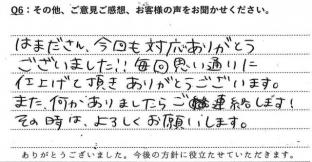 Q6：その他、ご意見ご感想、お客様の声をお聞かせください。
はまださん、今回も対応ありがとう
ございました!! 毎回思い通りに
仕上げて頂きありがとうございます。
また、何かありましたらご連絡します!
その時は、よろしくお願いします。
ありがとうございました。今後の方針に役立たせていただきます。